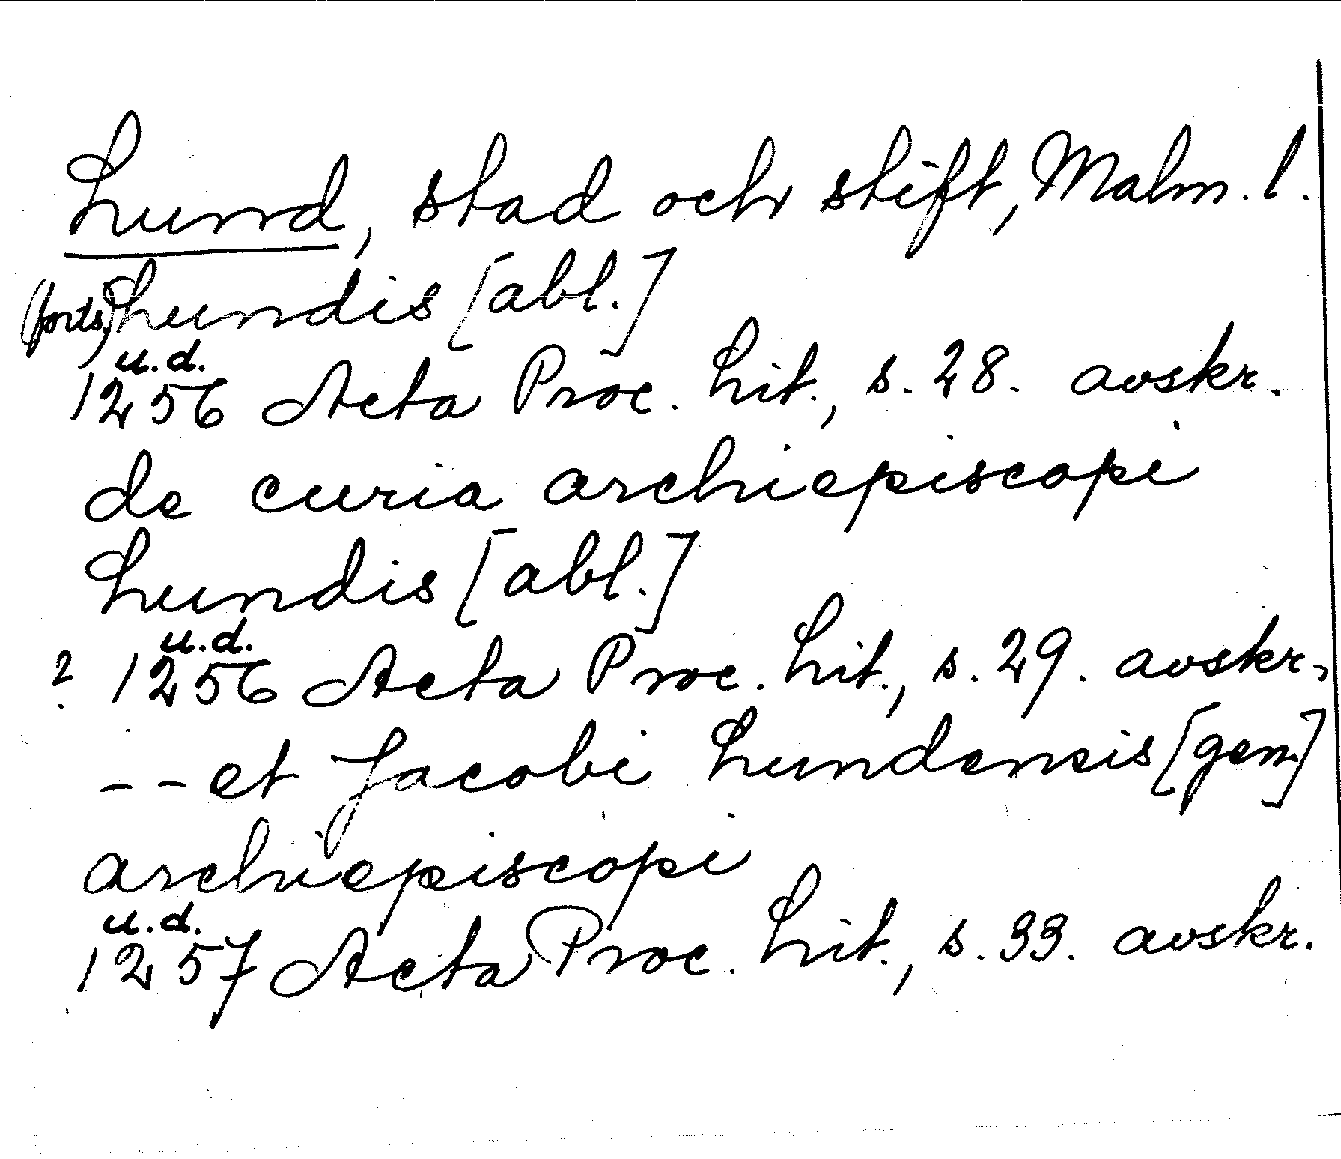 Lund, stad och stift, Malm. l.
(forts.) Lundis [abl.]
u.d.
1256 Acta Proc. Lit., s. 28. avskr.
de curia archiepiscopi
Lundis [abl.]
u.d.
? 1256 Acta Proc. Lit., s. 29. avskr.
-- et Jacobi Lundensis [gen.]
archiepiscopi
u.d.
1257 Acta Proc. Lit., s. 33. avskr.